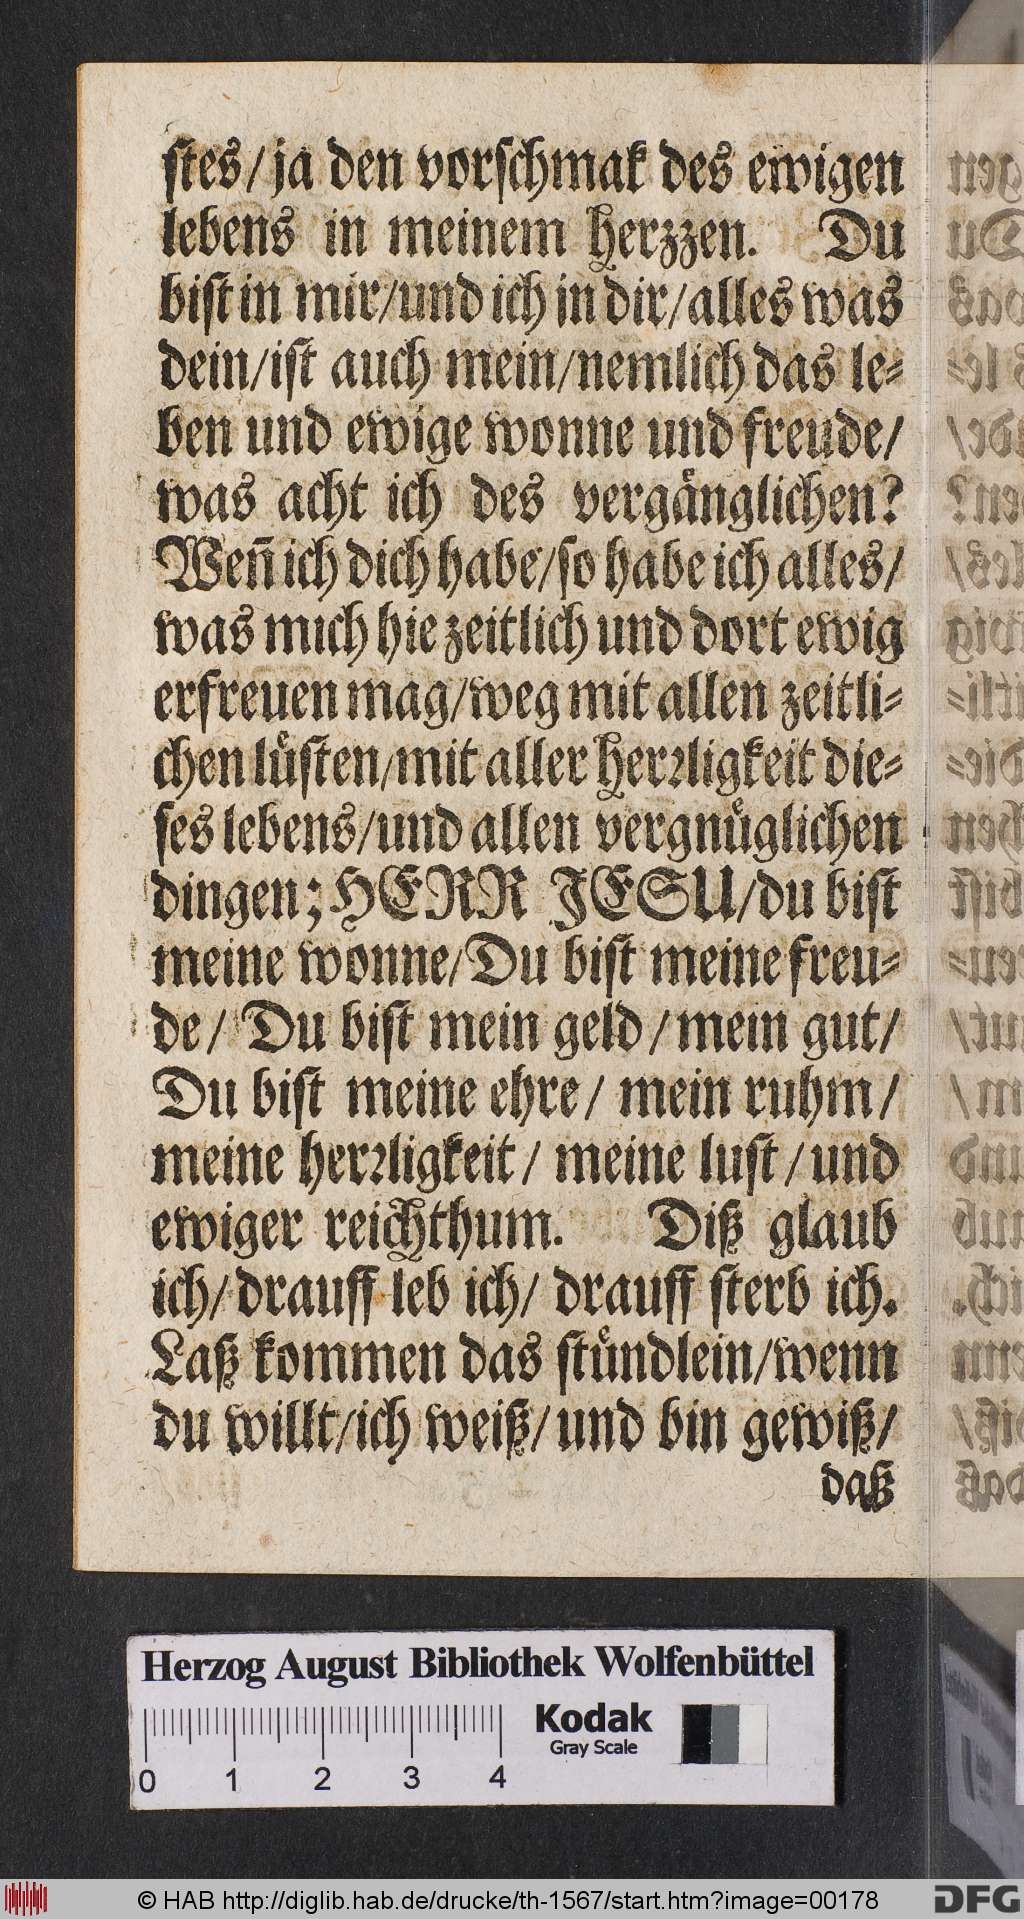 stes/ ja den vorschmak des ewigen
lebens in meinem herzzen. Du
bist in mir/und ich in dir/alles was
dein/ist auch mein/nemlich das le-
ben und ewige wonne und freude/
was acht ich des vergänglichen?
Weñ ich dich habe/so habe ich alles/
was mich hie zeitlich und dort ewig
erfreuen mag/weg mit allen zeitli-
chen lüsten/mit aller herꝛligkeit die-
ses lebens/und allen vergnüglichen
dingen; HERR JESU/du bist
meine wonne/Du bist meine freu-
de/ Du bist mein geld/mein gut/
Du bist meine ehre/ mein ruhm/
meine herꝛligkeit/ meine lust/und
ewiger reichthum. Diß glaub
ich/ drauff leb ich/ drauff sterb ich.
Laß kommen das stündlein/wenn
du willt/ich weiß/und bin gewiß/
daß
Herzog August Bibliothek Wolfenbüttel
Kodak
Gray Scale
0 1 2 3 4
© HAB http://diglib.hab.de/drucke/th-1567/start.htm?image=00178
DFG